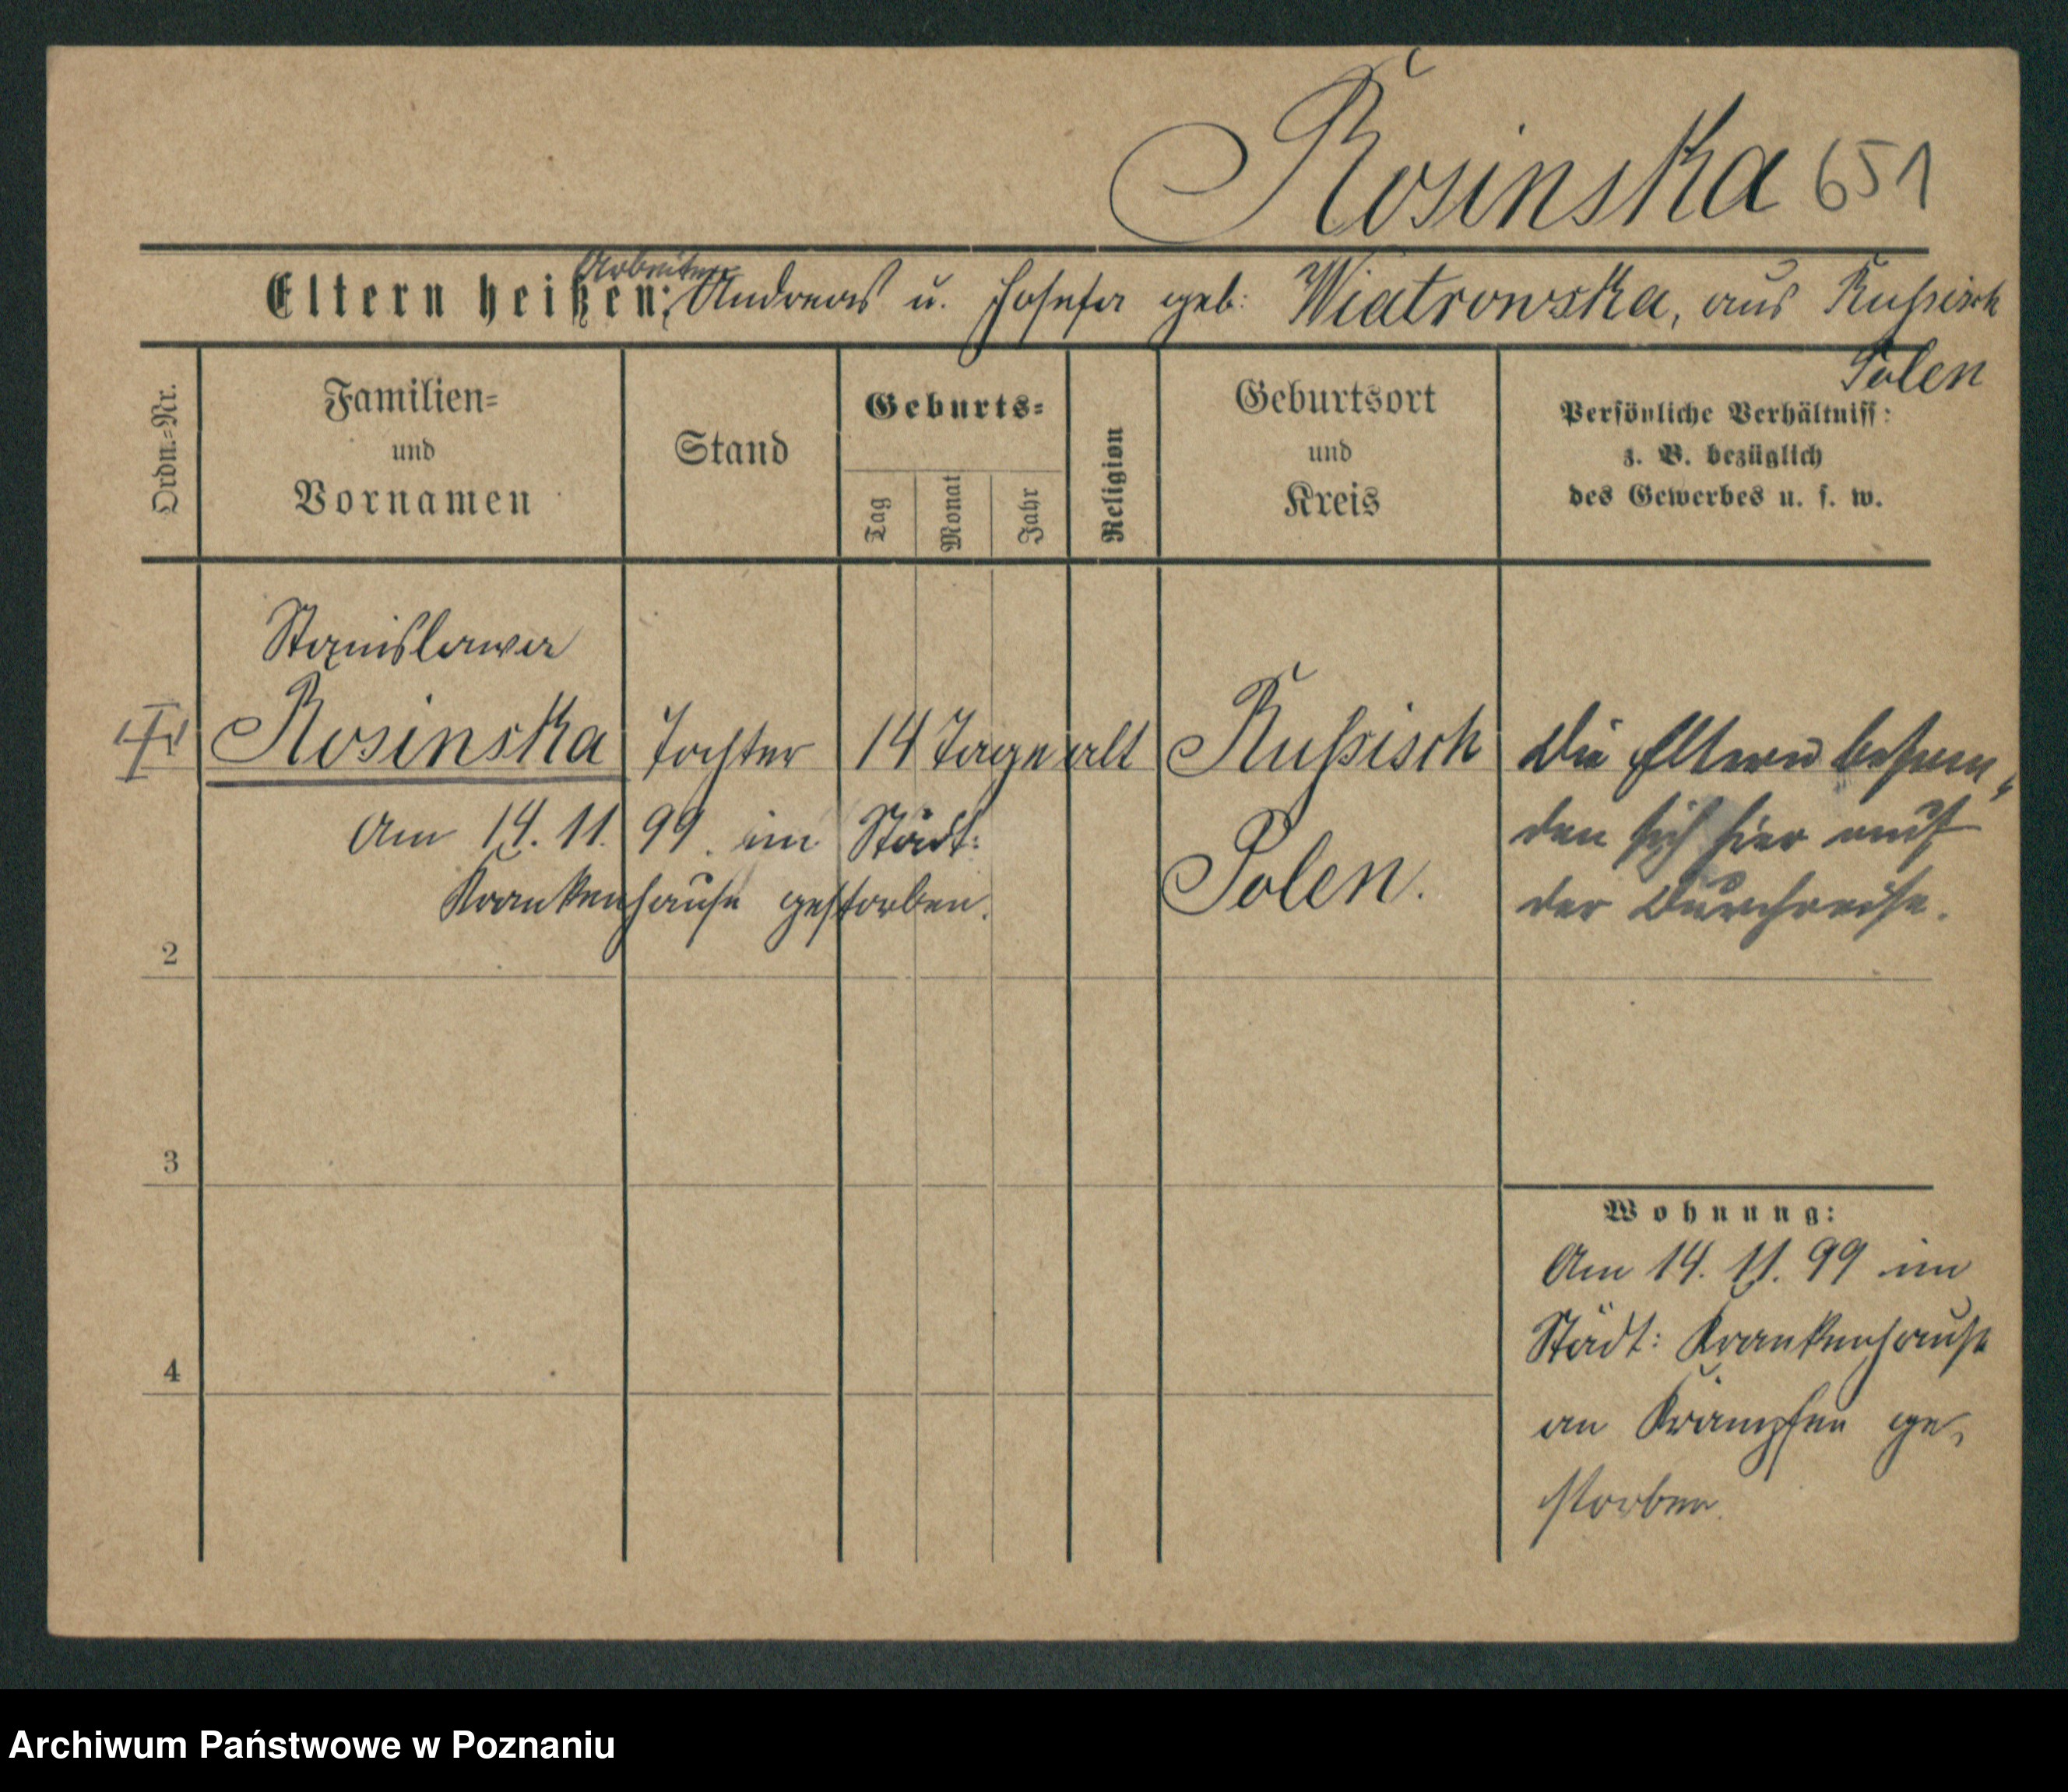 Rosinska 651
Arbeiter
Eltern heißen: Andreas u. Josefa geb: Wiatrowska, aus Russisch
Polen
Ordn.=Nr.
Familien=
und
Vornamen
Stand
Geburts=
Tag
Monat
Jahr
Religion
Geburtsort
und
Kreis
Persönliche Verhältniss:
z. B. bezüglich
des Gewerbes u. s. w.
Stanislawa
Rosinska Tochter 14 Tage alt Russisch
Polen.
Die Eltern befin=
den sich hier auf
der Durchreise.
Am 14. 11. 99. im Städt:
Krankenhause gestorben.
2
3
4
Wohnung:
Am 14. 11. 99 im
Städt: Krankenhause
an Krämpfen ge=
storben.
Archiwum Państwowe w Poznaniu